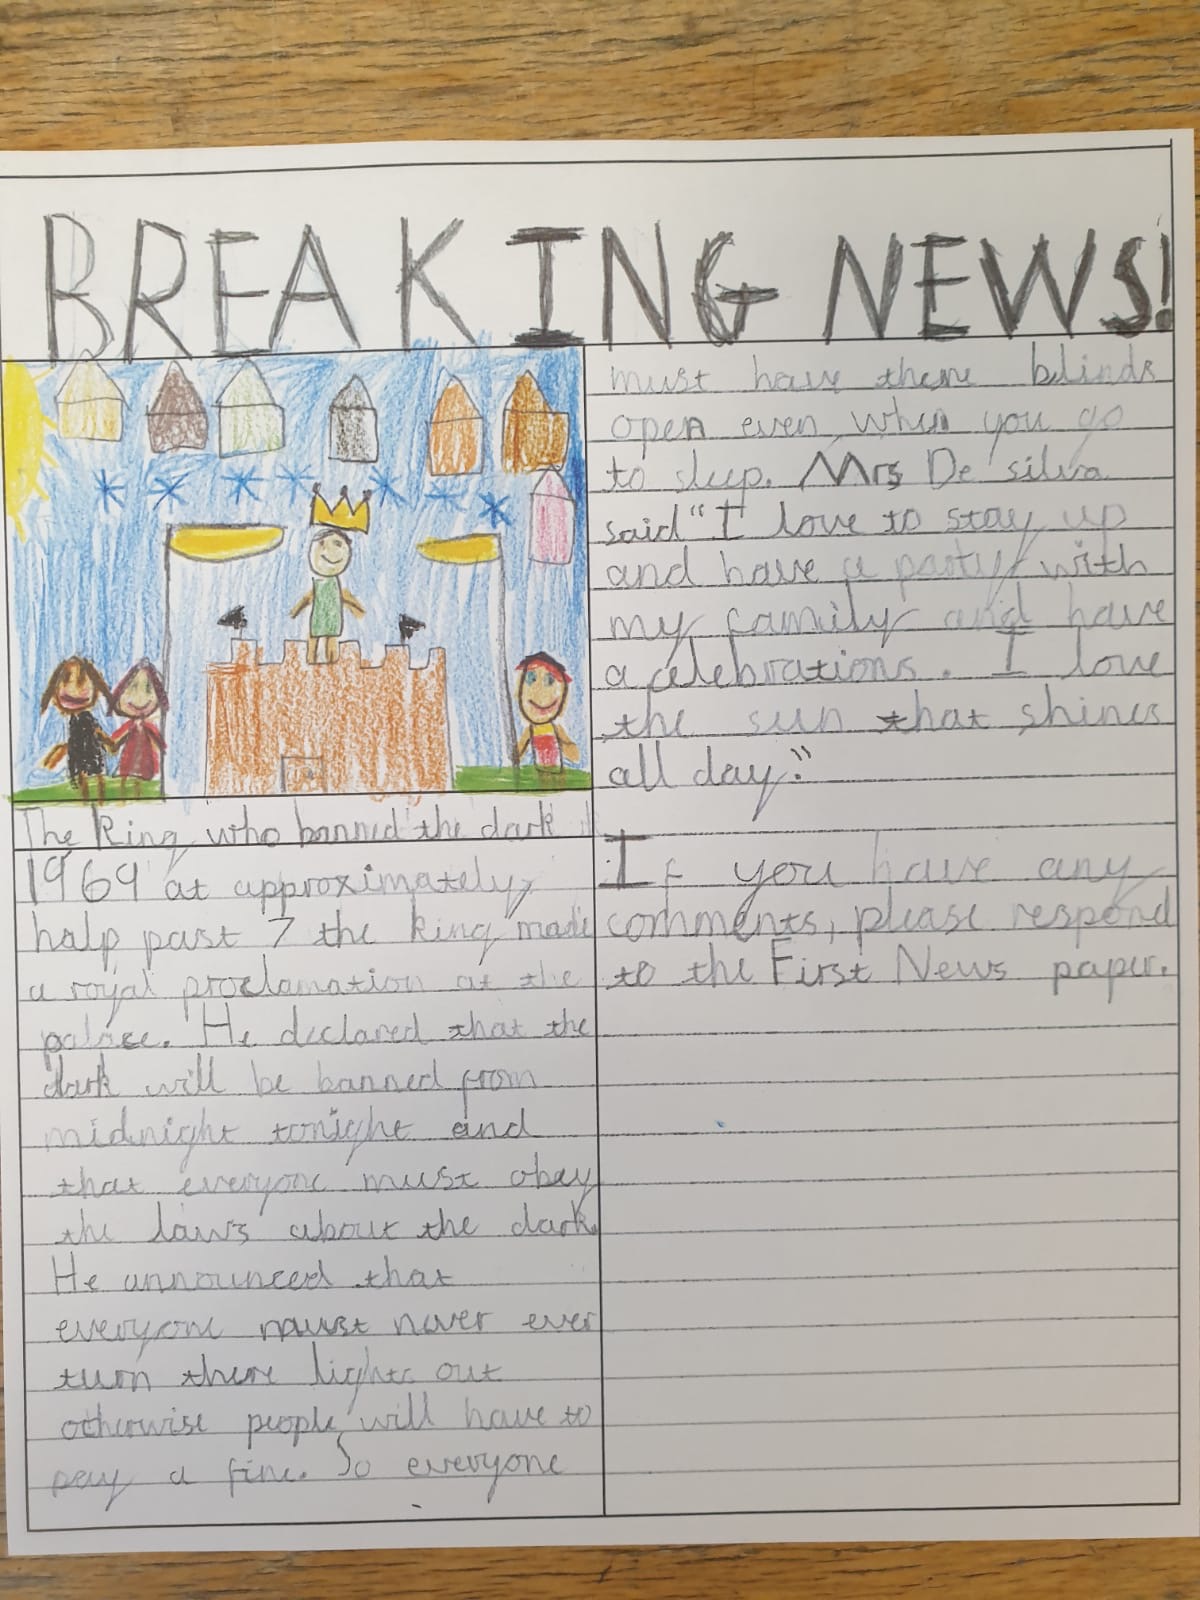 BREAKING NEWS!
The King who banned the dark
1969 at approximately
half past 7 the king made
a royal proclamation at the
palace. He declared that the
dark will be banned from
midnight tonight and
that everyone must obey
the laws about the dark.
He announced that
everyone must never ever
turn there lights out
otherwise people will have to
pay a fine. So everyone
must have there blinds
open even when you go
to sleep. Mrs De silva
said "I love to stay up
and have a party with
my family and have
a celebrations. I love
the sun that shines
all day."
If you have any
comments, please respond
to the First News paper.